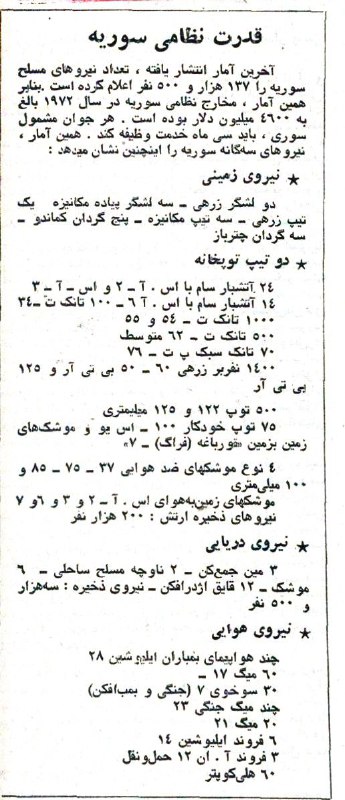 قدرت نظامی سوریه
آخرین آمار انتشار یافته ، تعداد نیروهای مسلح
سوریه را ۱۳۷ هزار و ۵۰۰ نفر اعلام کرده است .بنابر
همین آمار ، مخارج نظامی سوریه در سال ۱۹۷۲ بالغ
به ۴۶۰۰ میلیون دلار بوده است . هر جوان مشمول
سوری ، باید سی ماه خدمت وظیفه کند . همین آمار ،
نیروهای سه‌گانه سوریه را اینچنین نشان میدهد :
★ نیروی زمینی
دو لشگر زرهی ــ سه لشگر پیاده مکانیزه یک
تیپ زرهی ــ سه تیپ مکانیزه ــ پنج گردان کماندو ــ
سه گردان چترباز
★ دو تیپ توپخانه
۲۴ آتشبار سام با اس . آ ــ ۲ و اس ــ آ ــ ۳
۱۴ آتشبار سام با اس . آ ۶ ــ ۱۰۰ تانک ت ــ۳۴
۱۰۰۰ تانک ت ــ ۵۴ و ۵۵
۵۰۰ تانک ت ــ ۶۲ متوسط
۷۰ تانک سبک پ ت ــ ۷۶
۱۴۰۰ نفربر زرهی ۶۰ ــ ۵۰ بی تی آر و ۱۲۵
بی تی آر
۵۰۰ توپ ۱۲۲ و ۱۲۵ میلیمتری
۷۵ توپ خودکار ۱۰۰ ــ اس یو و موشک‌های
زمین بزمین «قورباغه (فراگ) ــ ۷»
۴ نوع موشکهای ضد هوایی ۳۷ ــ ۷۵ ــ ۸۵ و
۱۰۰ میلی‌متری
موشکهای زمین‌به‌هوای اس . آ ــ ۲ و ۳ و ۶و ۷
نیروهای ذخیره ارتش : ۲۰۰ هزار نفر
★ نیروی دریایی
۳ مین جمع‌کن ــ ۲ ناوچه مسلح ساحلی ــ ۶
موشک ــ ۱۲ قایق اژدرافکن ــ نیروی ذخیره : سه‌هزار
و ۵۰۰ نفر
★ نیروی هوایی
چند هواپیمای بمباران ایلیوشین ۲۸
۶۰ میگ ۱۷ ــ
۳۰ سوخوی ۷ (جنگی و بمب‌افکن)
چند میگ جنگی ۲۳
۲۰ میگ ۲۱
۶ فروند ایلیوشین ۱۴
۳ فروند آ . ان ۱۲ حمل‌ونقل
۶۰ هلی‌کوپتر